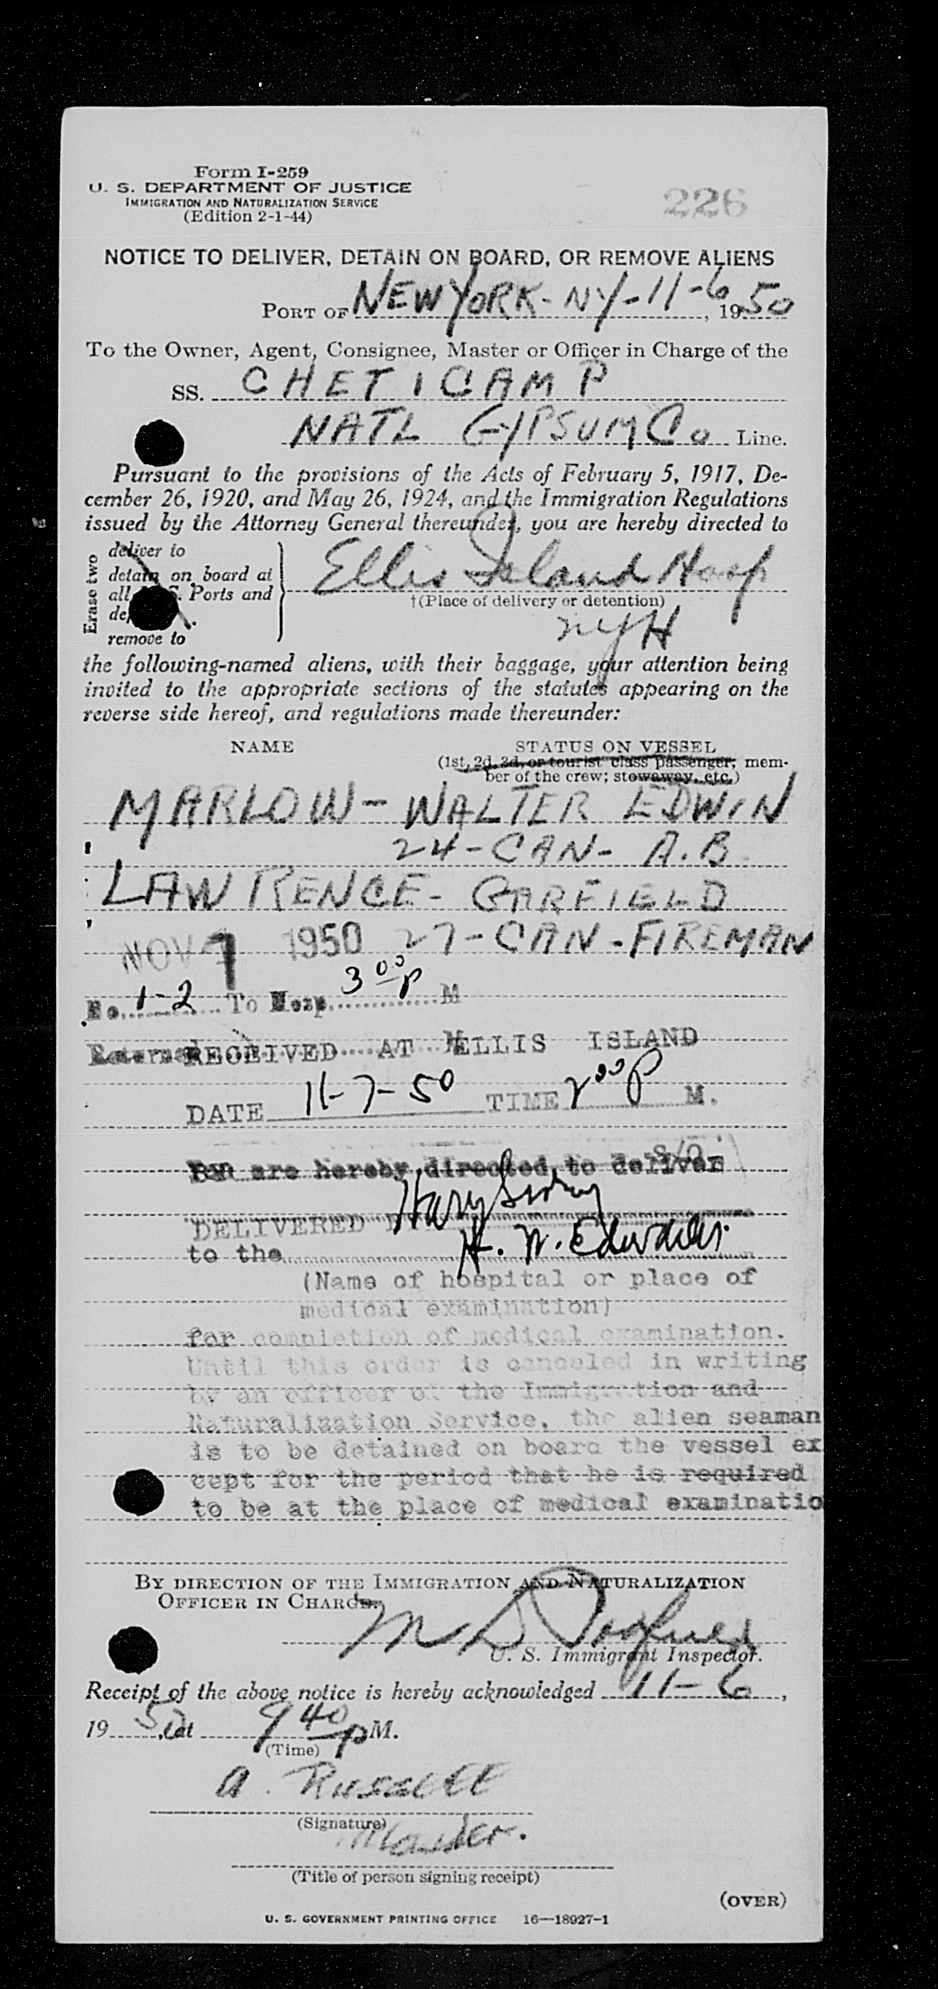 Form I-259
U. S. DEPARTMENT OF JUSTICE
IMMIGRATION AND NATURALIZATION SERVICE
(Edition 2-1-44)
226
NOTICE TO DELIVER, DETAIN ON BOARD, OR REMOVE ALIENS
PORT OF NEW YORK - NY - 11-6, 1950
To the Owner, Agent, Consignee, Master or Officer in Charge of the
SS. CHETICAMP
NATL GYPSUM Co Line.
Pursuant to the provisions of the Acts of February 5, 1917, De-
cember 26, 1920, and May 26, 1924, and the Immigration Regulations
issued by the Attorney General thereunder, you are hereby directed to
Erase two
deliver to
detain on board at
all Ports and
remove to
Ellis Island Hosp
†(Place of delivery or detention)
NYH
the following-named aliens, with their baggage, your attention being
invited to the appropriate sections of the statutes appearing on the
reverse side hereof, and regulations made thereunder:
NAME STATUS ON VESSEL
(1st, 2d, 3d, or tourist class passenger; mem-
ber of the crew; stowaway, etc.)
MARLOW - WALTER EDWIN
24 - CAN - A.B.
LAWRENCE - GARFIELD
27 - CAN - FIREMAN
NOV 7 1950
No. 1-2 To Hosp. 3 00 P M
RECEIVED AT ELLIS ISLAND
DATE 11-7-50 TIME 2 00 P M.
are hereby directed to deliver
DELIVERED
H. W. Edwards
to the
(Name of hospital or place of
medical examination)
for completion of medical examination.
Until this order is canceled in writing
by an officer of the Immigration and
Naturalization Service, the alien seaman
is to be detained on board the vessel ex
cept for the period that he is required
to be at the place of medical examinatio
BY DIRECTION OF THE IMMIGRATION AND NATURALIZATION
OFFICER IN CHARGE.
U. S. Immigrant Inspector.
Receipt of the above notice is hereby acknowledged 11-6,
1950, at 9 40 P M.
(Time)
A. Russell
(Signature)
Master.
(Title of person signing receipt)
(OVER)
U. S. GOVERNMENT PRINTING OFFICE 16—18927-1